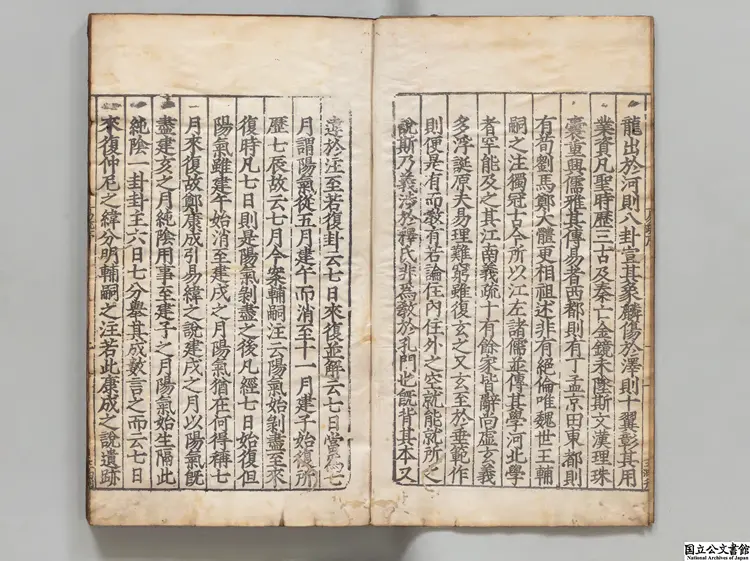 龍出於河則八卦宣其象麟傷於澤則十翼彰其用
業資凡聖時歷三古及秦亡金鏡未墜斯文漢理珠
囊重興儒雅其傳易者西都則有丁孟京田東都則
有荀劉馬鄭大體更相祖述非有絕倫唯魏世王輔
嗣之注獨冠古今所以江左諸儒並傳其學河北學
者罕能及之其江南義疏十有餘家皆辭尚虛玄義
多浮誕原夫易理難窮雖復玄之又玄至於垂範作
則便是有而教有若論住內住外之空就能就所之
說斯乃義涉於釋氏非爲教於孔門也旣背其本又
違於注至若復卦云七日來復並解云七日當爲七
月謂陽氣從五月建午而消至十一月建子始復所
歷七辰故云七月今案輔嗣注云陽氣始剝盡至來
復時凡七日則是陽氣剝盡之後凡經七日始復但
陽氣雖建午始消至建戌之月陽氣猶在何得稱七
月來復故鄭康成引易緯之說建戌之月以陽氣旣
盡建亥之月純陰用事至建子之月陽氣始生隔此
純陰一卦卦主六日七分舉其成數言之而云七日
來復仲尼之緯分明輔嗣之注若此康成之說遺跡
国立公文書館
National Archives of Japan